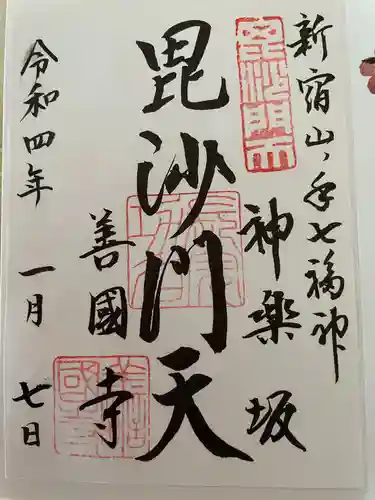 新宿山ノ手七福神
毘沙門天
神樂坂
毘沙門天
善國寺
令和四年 一月 七日